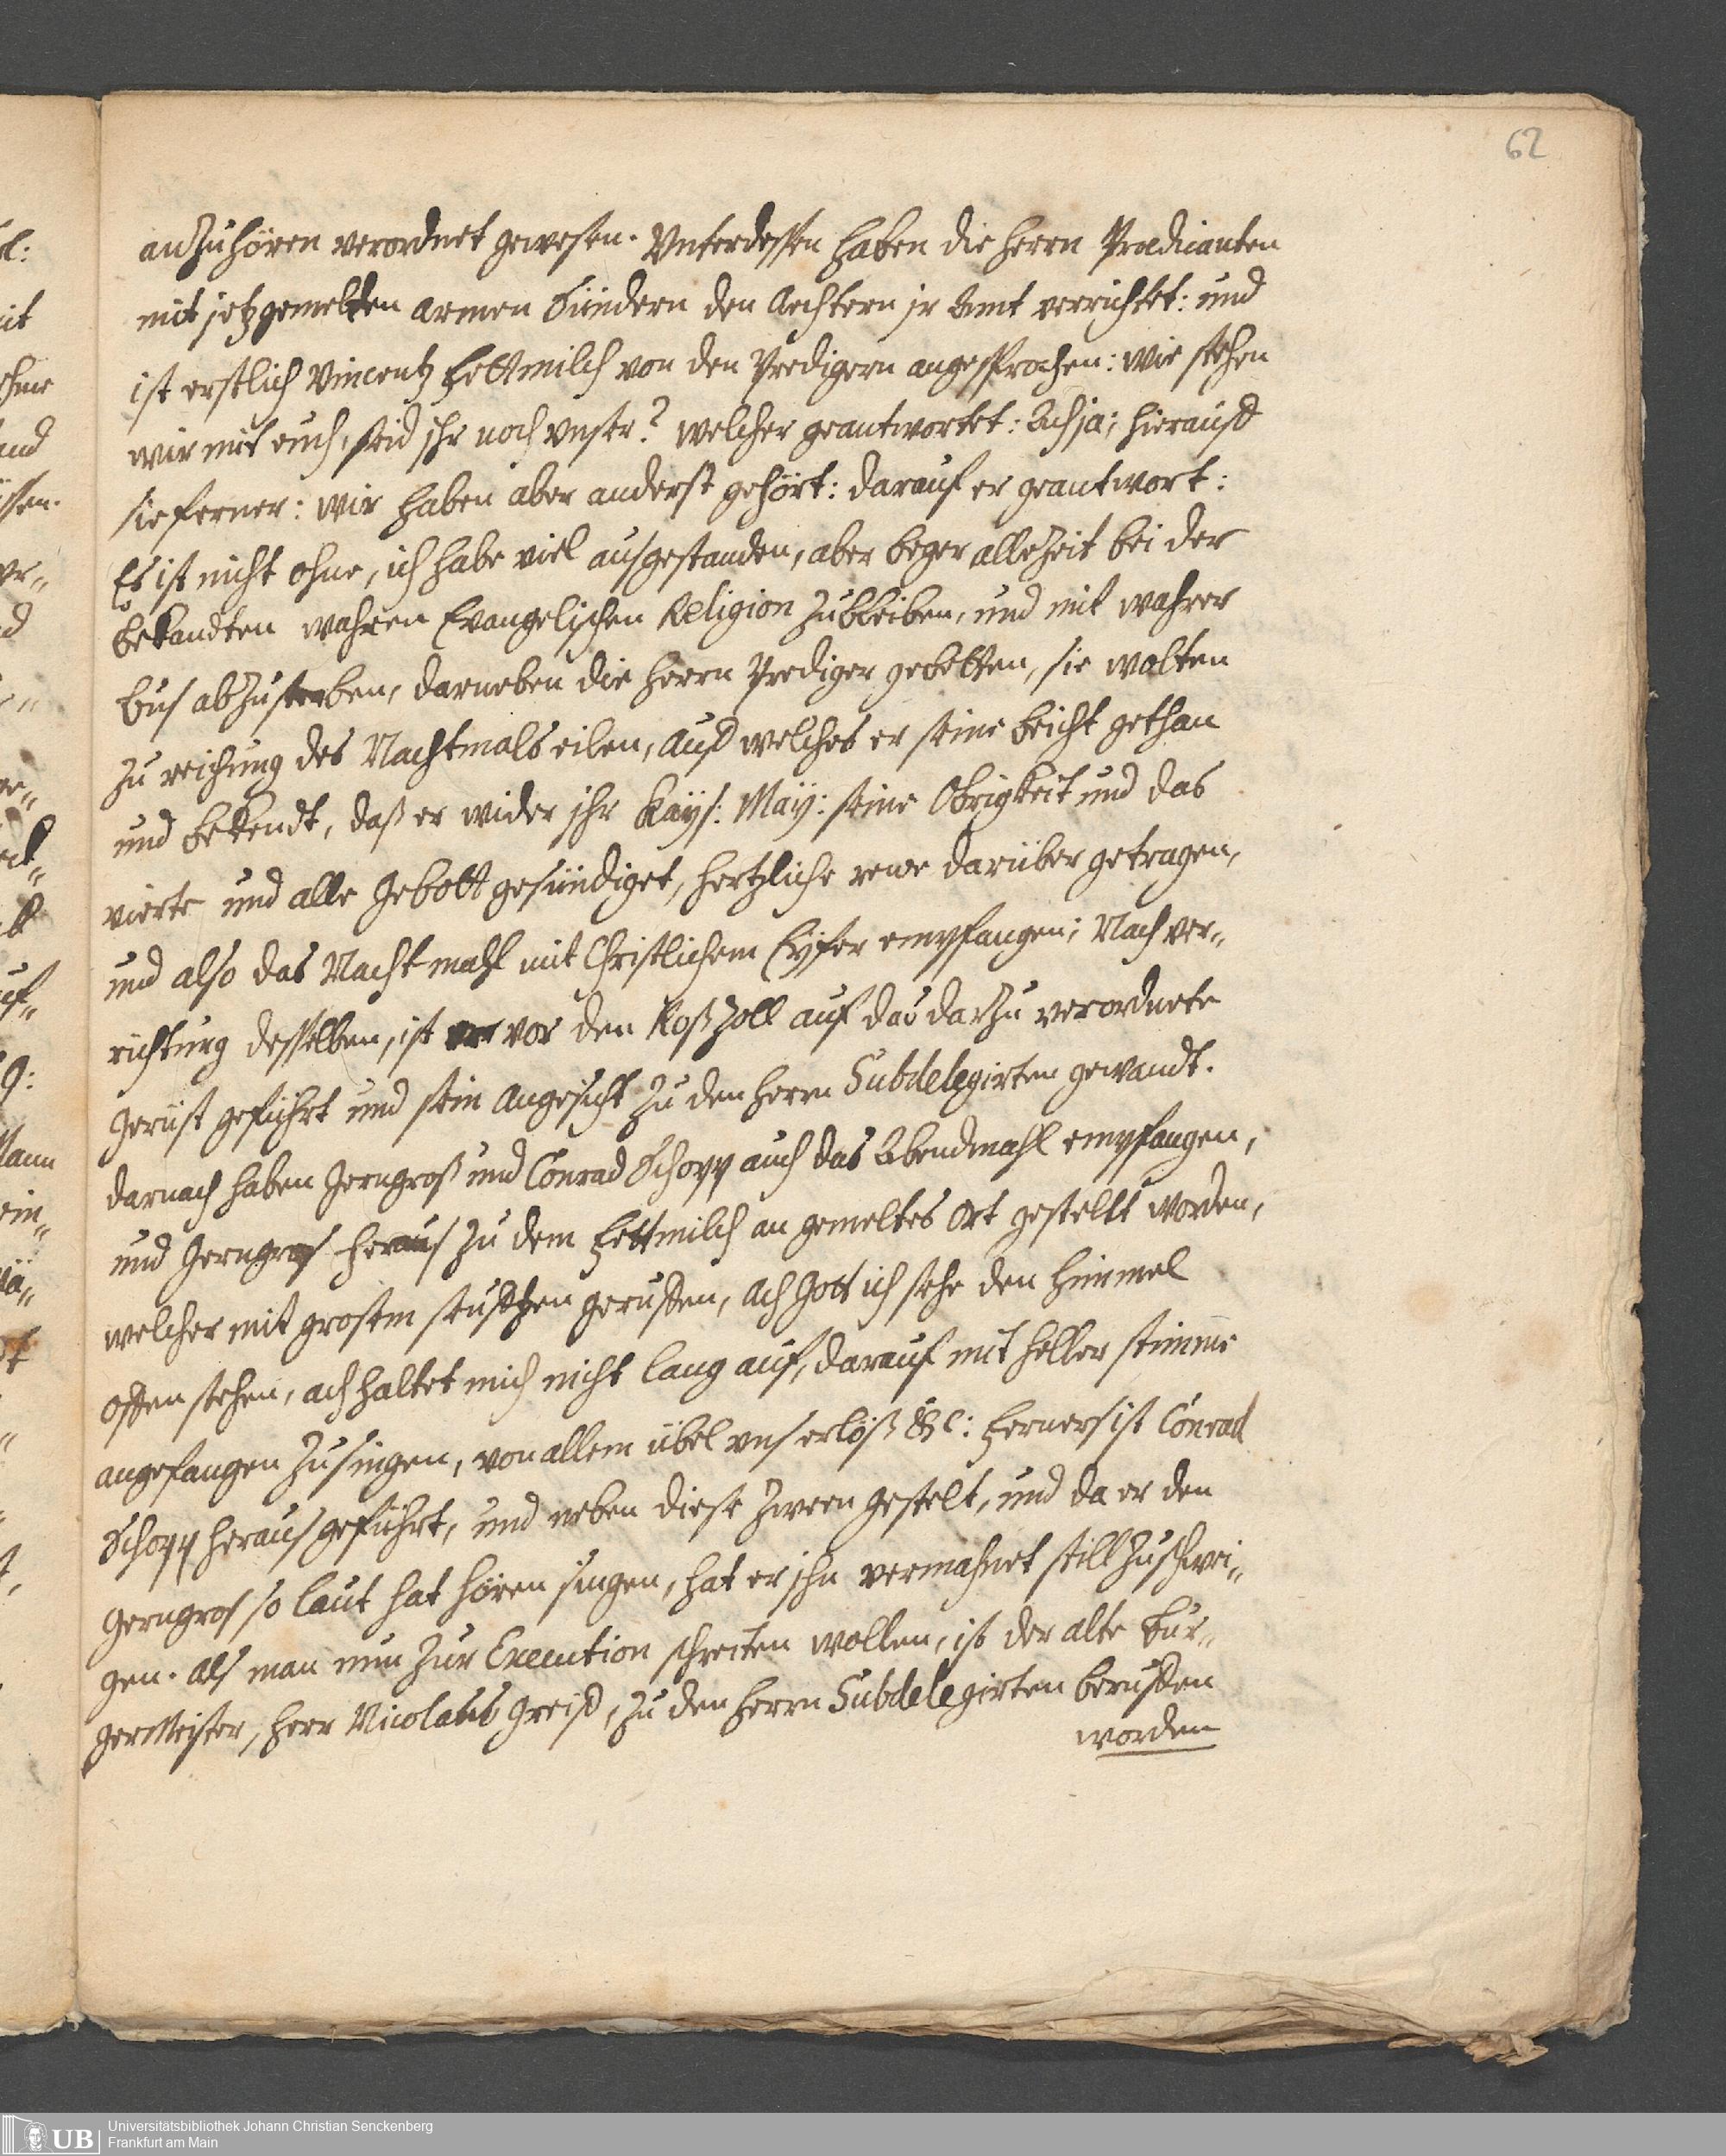 62
anzuhören verordnet gewesen. Vnterdessen haben die herrn Prædicanten
mit jetzgemelten armen Sündern den Aechtern jr Amt verrichtet: und
ist erstlich Vincentz Fettmilch von den Predigern angesprochen: wie stehen
wir mit euch, seid jhr noch vnser? welcher geantwortet: Ach ja; hierauff
sie ferner: wir haben aber anderst gehört: darauf er geantwort:
Es ist nicht ohne, ich habe viel ausgestanden, aber beger allezeit bei der
bekandten wahren Evangelischen Religion zubleiben, und mit wahrer
bus abzusterben, darneben die herrn Prediger gebetten, sie wolten
zu reichung des Nachtmals eilen, auff welches er seine beicht gethan
und bekendt, daß er wider jhr Kays: May: seine Obrigkeit und das
vierte und alle Gebott gesündiget, hertzliche rewe darüber getragen,
und also das Nachtmahl mit Christlichem Eyfer empfangen; Nach ver„
richtung desselben, ist er vor den Roßzoll auf das darzu verordnete
gerüst geführt und sein angesicht zu den herrn Subdelegirten gewandt.
darnach haben Gerngroß und Conrad Schopp auch das Abendmahl empfangen,
und Gerngros heraus zu dem Fettmilch an gemeltes Ort gestellt worden,
welcher mit grosem seuffzen geruffen, ach Gott ich sehe den himmel
offen stehen, ach haltet mich nicht lang auf, darauf mit heller stimme
angefangen zusingen, von allem übel vns erlöß &c: Ferners ist Conrad
Schopp herausgeführt, und neben diese zween gestelt, und da er den
Gerngros so laut hat hören singen, hat er jhn vermahnet still zuschwei„
gen. als man nun zur Execution schreiten wollen, ist der alte Bur„
germeister, herr Nicolaus Greiff, zu den herrn Subdelegirten beruffen
worden
UB
Universitätsbibliothek Johann Christian Senckenberg
Frankfurt am Main